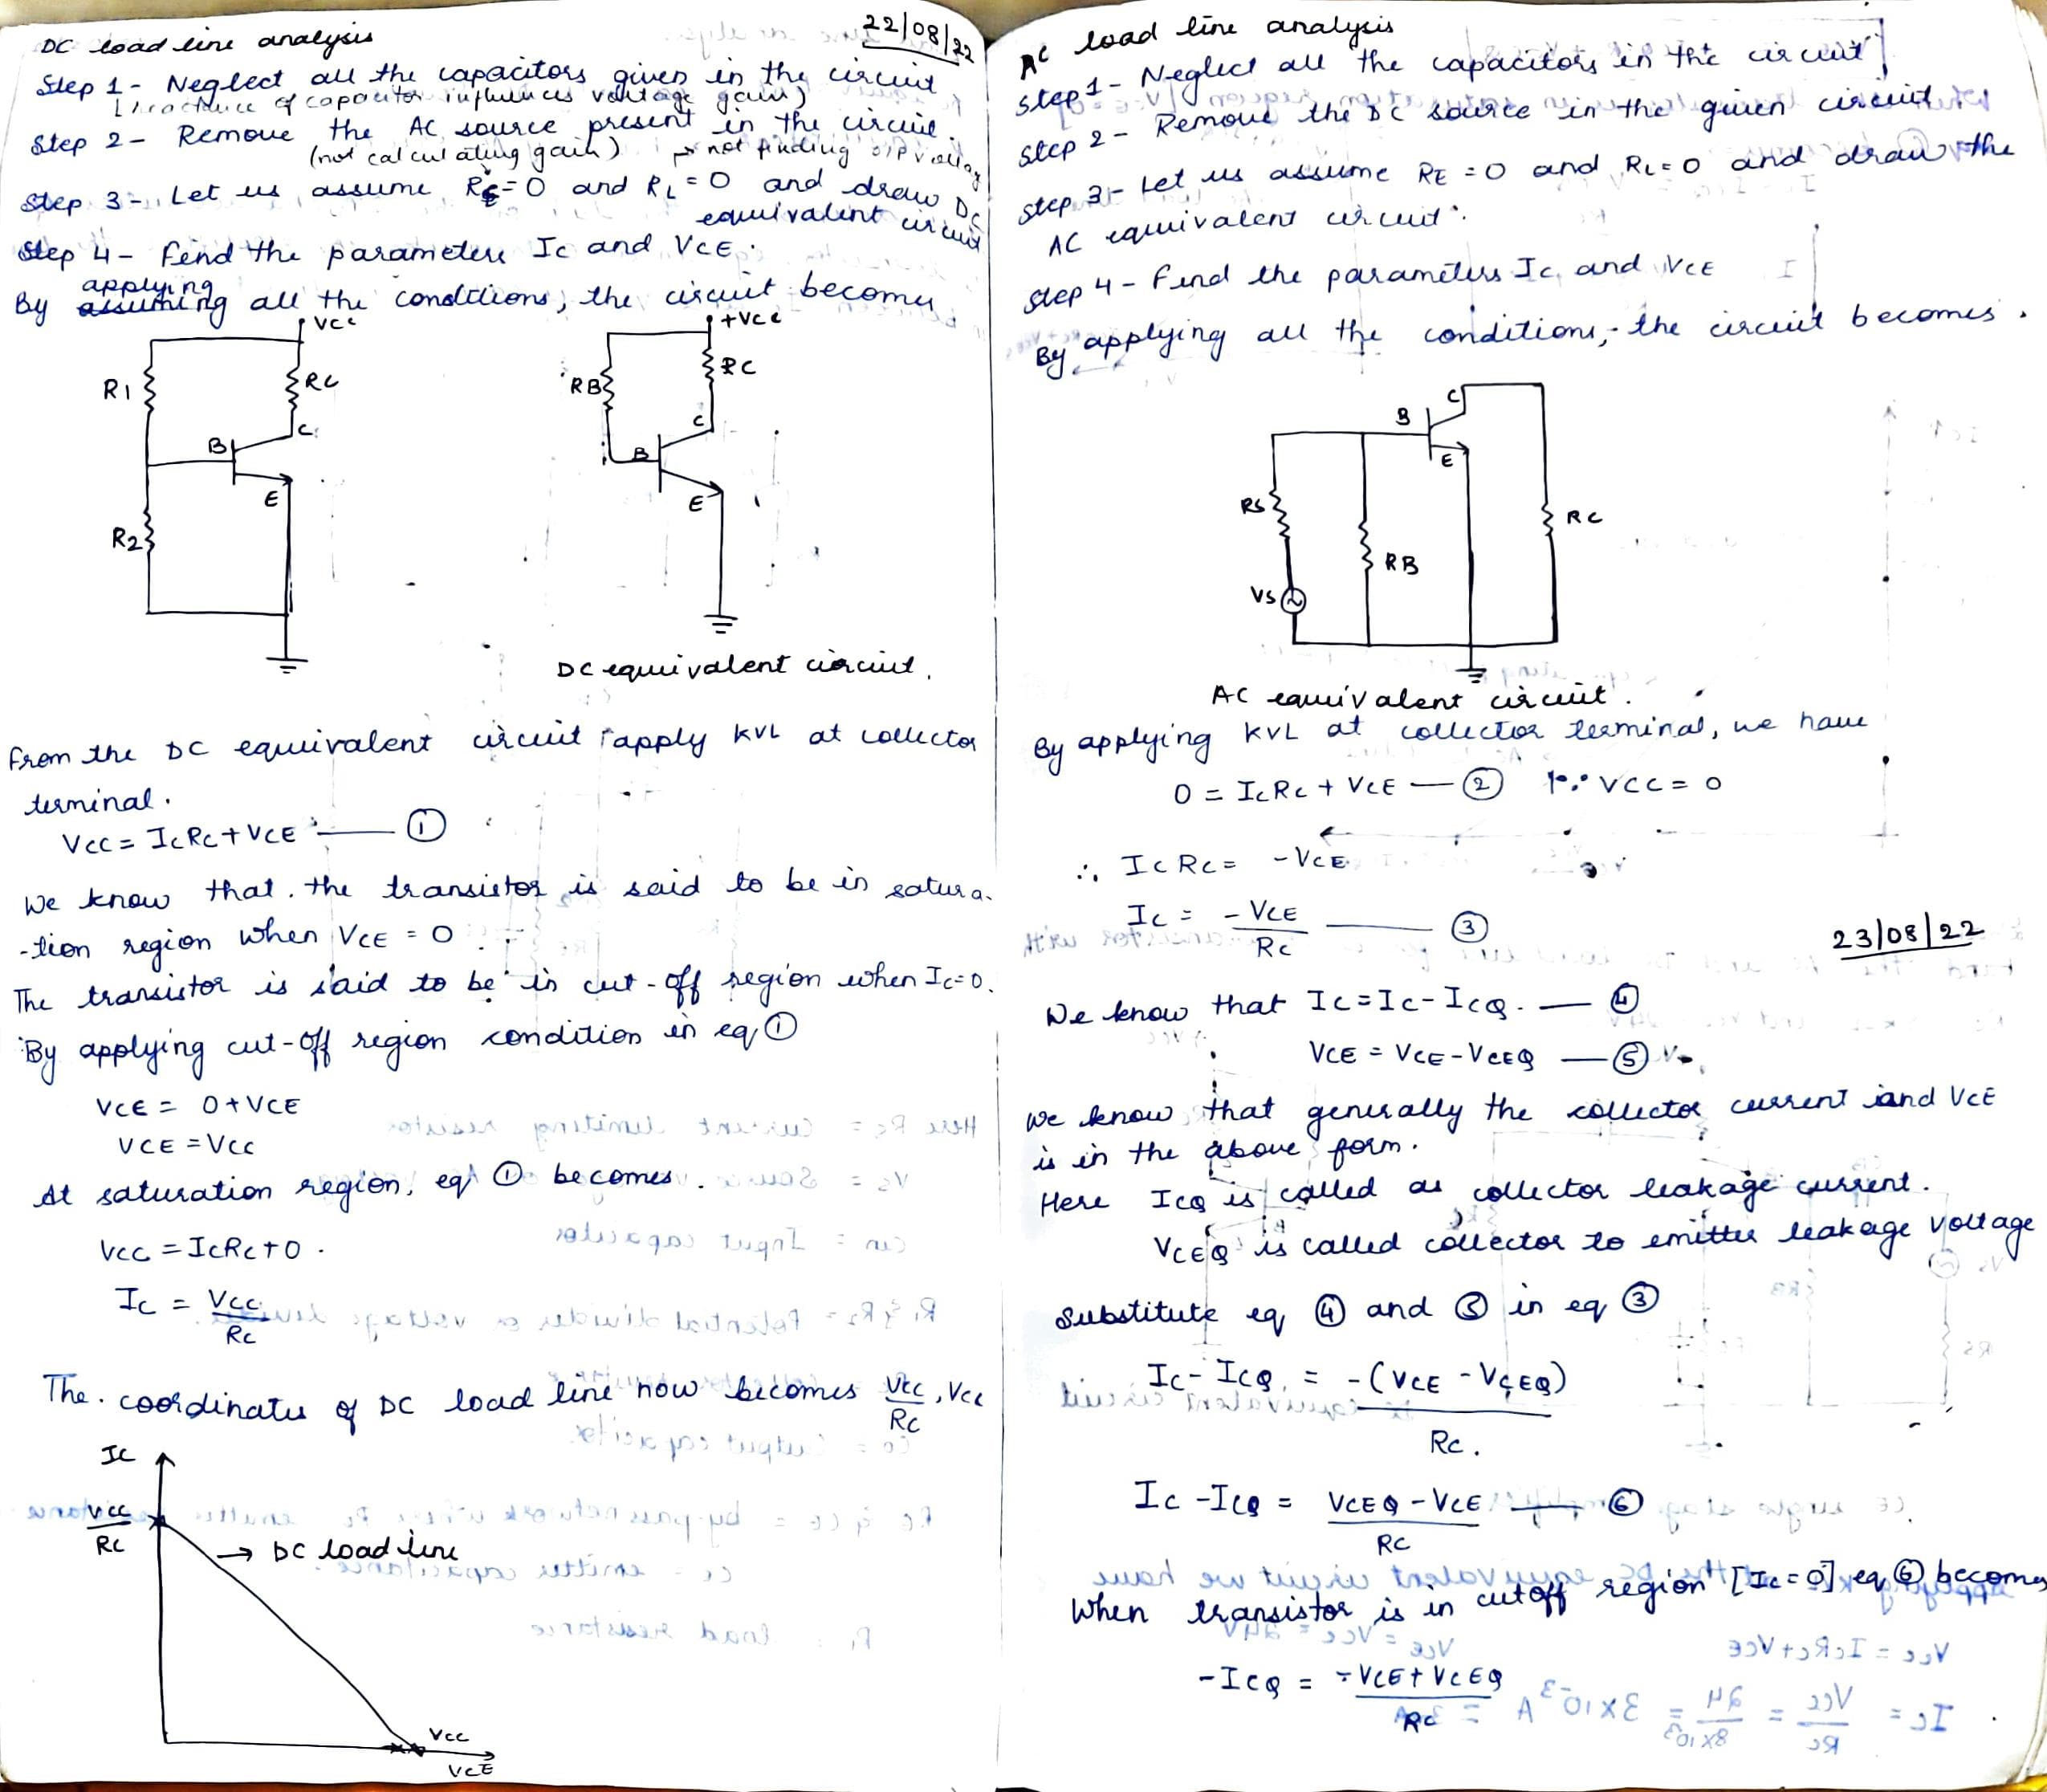 22/08/22
DC load line analysis
Step 1 - Neglect all the capacitors given in the circuit
(reactance of capacitor influences voltage gain)
Step 2 - Remove the AC source present in the circuit.
(not calculating gain) → not finding o/p voltage
Step 3 - Let us assume RE = 0 and RL = 0 and draw DC
equivalent circuit
Step 4 - Find the parameters Ic and VCE.
applying
By assuming all the conditions, the circuit becomes
Vcc
R1
RC
B
C
E
R2
+Vcc
RB
RC
C
B
E
DC equivalent circuit.
From the DC equivalent circuit, apply KVL at collector
terminal.
Vcc = IcRc + VCE — ①
We know that the transistor is said to be in satura-
-tion region when VCE = 0
The transistor is said to be in cut-off region when Ic=0.
By applying cut-off region condition in eq ①
VCE = 0 + VCE
VCE = Vcc
At saturation region, eq ① becomes.
Vcc = IcRc + 0.
Ic = Vcc
Rc
The coordinates of DC load line now becomes Vcc , Vcc
Rc
Ic
Vcc
Rc
→ DC load line
Vcc
VCE
AC load line analysis
Step 1 - Neglect all the capacitors in the circuit
Step 2 - Remove the DC source in the given circuit
Step 3 - Let us assume RE = 0 and RL = 0 and draw the
AC equivalent circuit.
Step 4 - Find the parameters Ic and VCE
By applying all the conditions, the circuit becomes.
B
C
E
RS
RB
RC
VS
AC equivalent circuit.
By applying KVL at collector terminal, we have
0 = IcRc + VCE — ② ∵ VCC = 0
∴ IcRc = -VCE
Ic = - VCE — ③
Rc
23/08/22
We know that Ic = Ic - IcQ. — ④
VCE = VCE - VCEQ — ⑤
We know that generally the collector current and VCE
is in the above form.
Here ICQ is called as collector leakage current.
VCEQ is called collector to emitter leakage voltage
Substitute eq ④ and ⑤ in eq ③
Ic - ICQ = -(VCE - VCEQ)
Rc.
Ic - ICQ = VCEQ - VCE — ⑥
RC
When transistor is in cutoff region [Ic = 0] eq ⑥ becomes
-ICQ = -VCE + VCEQ
RC